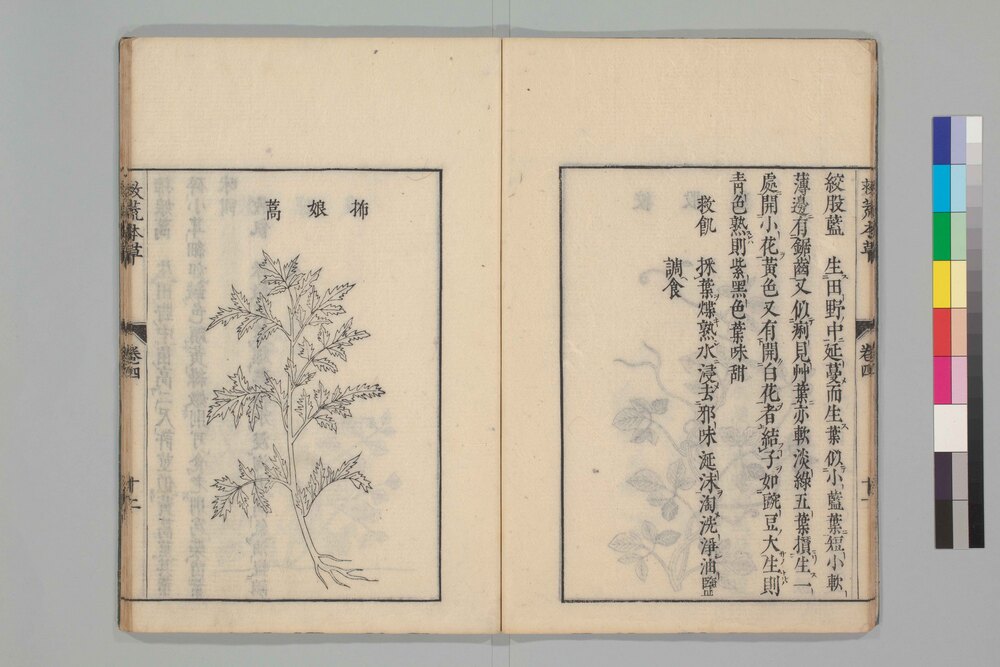 絞股藍　生田野中延蔓而生葉似小藍葉短小軟
薄邊有鋸齒又似痢見艸葉亦軟淡綠五葉攢生一
處開小花黃色又有開白花者結子如豌豆大生則
靑色熟則紫黑色葉味甜
救飢　採葉煠熟水浸去邪味涎沫淘洗淨油鹽
調食
救荒本草　卷四
抪娘蒿
救荒本草　卷四　十二